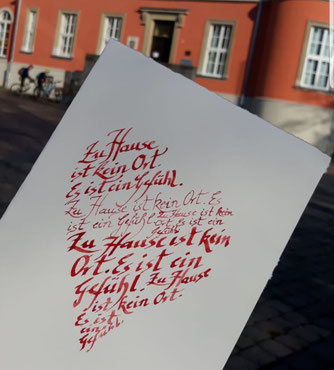 Zu Hause
ist kein Ort.
Es ist ein Gefühl.
Zu Hause ist kein Ort. Es
ist ein Gefühl. Zu Hause ist kein
Ort. Es ist ein
Gefühl.
Zu Hause ist kein
Ort. Es ist ein
Gefühl. Zu Hause
ist kein Ort.
Es ist
ein
Gefühl.